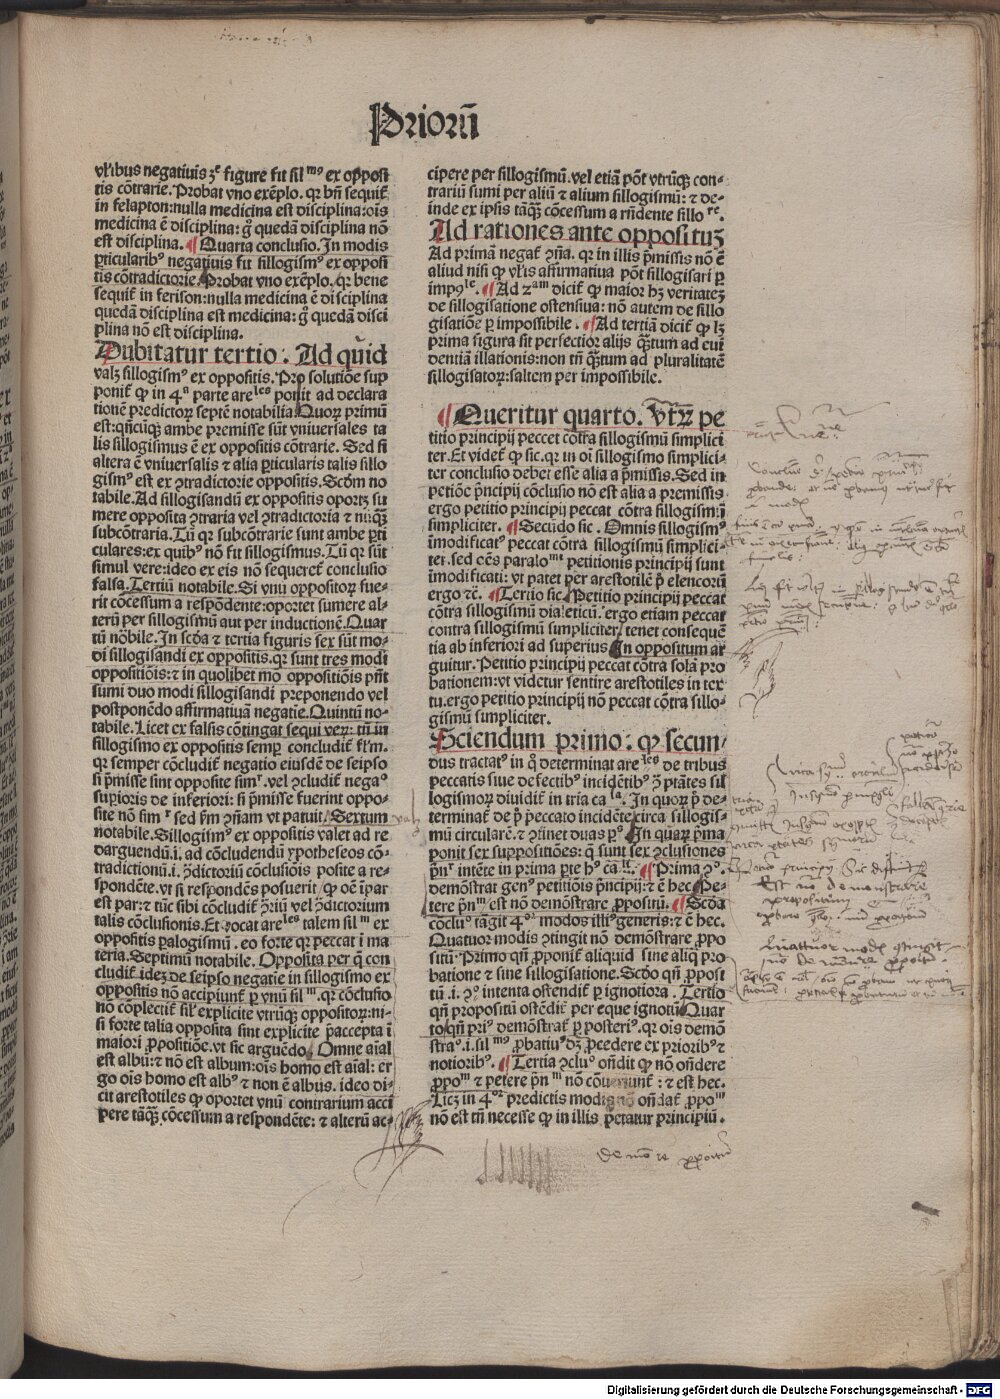 Priorū
vl'ibus negatiuis 3e figure fit sil mꝰ ex opposi
tis cōtrarie. Probat vno exēplo. qr bn̄ sequit̄
in felapton: nulla medicina est disciplina: oīs
medicina ē disciplina: g̊ quedā disciplina nō
est disciplina. ¶ Quarta conclusio. In modis
ꝑticularibꝰ negatiuis fit sillogismꝰ ex opposi
tis cōtradictorie. Probat vno exēplo. qr bene
sequit̄ in ferison: nulla medicina ē disciplina
quedā disciplina est medicina: g̊ quedā disci
plina nō est disciplina.
Dubitatur tertio. Ad quid
valꝫ sillogismꝰ ex oppositis. Pro solutiōe sup
ponit̄ ꝙ in 4a parte are les ponit ad declara
tionē predictoꝝ septē notabilia. Quoꝝ primū
est: qn̄cūqꝫ ambe premisse sūt vniuersales ta
lis sillogismus ē ex oppositis cōtrarie. Sed si
altera ē vniuersalis ⁊ alia ꝑticularis talis sillo
gismꝰ est ex ꝯtradictorie oppositis. Scd̄m no
tabile. Ad sillogisandū ex oppositis oportꝫ su
mere opposita ꝯtraria vel ꝯtradictoria ⁊ nūqꝫ
subcōtraria. Tū qr subcōtrarie sunt ambe ꝑti
culares: ex quibꝰ nō fit sillogismus. Tū qr sūt
simul vere: ideo ex eis nō sequeret̄ conclusio
falsa. Tertiū notabile. Si vnū oppositoꝝ fue-
rit cōcessum a respōdente: oportet sumere al-
terū per sillogismū aut per inductionē. Quar
tū nōbile. In scd̄a ⁊ tertia figuris sex sūt mo-
di sillogisandi ex oppositis. qr sunt tres modi
oppositiōis: ⁊ in quolibet mō oppositiōis pn̄t
sumi duo modi sillogisandi preponendo vel
postponēdo affirmatiuā negatiē. Quintū no-
tabile. Licet ex falsis cōtingat sequi veꝝ: tn̄ in
sillogismo ex oppositis semp̄ concludit̄ fl'm.
qr semper cōcludit̄ negatio eiusdē de seipso
si p̄misse sint opposite simr. vel ꝯcludit̄ negao
supioris de inferiori: si p̄misse fuerint oppo-
site nō sim r sed ꝑm ꝯn̄am vt patuit. Sextum
notabile. Sillogismꝰ ex oppositis valet ad re
darguendū. i. ad cōcludendū ypotheseos cō-
tradictionū. i. ꝯdictoriū cōclusiōis posite a re-
spondēte. vt si respondēs posuerit ꝙ oē īpar
est par: ⁊ tūc sibi cōcludit̄ ꝯriū vel ꝯdictorium
talis cōclusionis. Et vocat are les talem sil m ex
oppositis ꝑalogismū. eo forte qr peccat ī ma
teria. Septimū notabile. Opposita per q̄ con
cludit̄ idē de seipso negatie in sillogismo ex
oppositis nō accipiunt̄ ꝑ vnū sil m. qr cōclusio
nō cōplectit̄ sil' explicite vtrūqꝫ oppositoꝝ: ni-
si forte talia opposita sint explicite p̄accepta ī
maiori ꝓpositiōe. vt sic arguēdo. Omne aīal
est albū: ⁊ nō est album: oīs homo est aīal: er
go oīs homo est albꝰ ⁊ non ē albus. ideo di-
cit arestotiles ꝙ oportet vnū contrarium acci
pere tāqꝫ cōcessum a respondēte: ⁊ alterū ac-
cipere per sillogismū. vel etiā pōt vtrūqꝫ con-
trariū sumi per aliū ⁊ alium sillogismū: ⁊ de-
inde ex ipsis tāqꝫ cōcessum a rn̄dente sillo re.
Ad rationes ante oppositū
Ad primā negat̄ ꝯn̄a. qr in illis p̄missis nō ē
aliud nisi ꝙ vl'is affirmatiua pōt sillogisari ꝑ
impꝯle. ¶ Ad 2am dicit̄ ꝙ maior hꝫ veritatē
de sillogisatione ostensiua: nō autem de sillo
gisatiōe ꝑ impossibile. ¶ Ad tertiā dicit̄ ꝙ lꝫ
prima figura sit perfectior alijs qꝫtum ad eui
dentiā illationis: non tn̄ qꝫtum ad pluralitatē
sillogisatoꝝ: saltem per impossibile.
¶ Queritur quarto. Vtꝝ pe
titio principij peccet cōtra sillogismū simplici
ter. Et videt̄ ꝙ sic. qr in oī sillogismo simplici-
ter conclusio debet esse alia a p̄missis. Sed in
petiōe p̄ncipij cōclusio nō est alia a premissis
ergo petitio principij peccat cōtra sillogismū
simpliciter. ¶ Secūdo sic. Omnis sillogismꝰ
īmodificatꝰ peccat cōtra sillogismū simplici-
ter. sed oēs paralo mi petitionis principij sunt
īmodificati: vt patet per arestotilē ꝑ elencoꝝ
ergo ⁊c. ¶ Tertio sic. Petitio principij peccat
cōtra sillogismū dialeticū. ergo etiam peccat
contra sillogismū simpliciter. tenet consequē
tia ab inferiori ad superius. In oppositum ar
guitur. Petitio principij peccat cōtra solā pro
bationem: vt videtur sentire arestotiles in tex
tu. ergo petitio principij nō peccat cōtra sillo-
gismū simpliciter.
Sciendum primo. ꝙ secun
dus tractatꝰ in q̊ determinat are les de tribus
peccatis siue defectibꝰ incidētibꝰ ꝯ ptātes sil
logismoꝝ diuidit̄ in tria ca la. In quoꝝ p̊ de-
terminat̄ de p̊ peccato incidēte circa sillogis-
mū circularē. ⁊ ꝯtinet duas ꝑs. In quaꝝ pr̄ma
ponit sex suppositiōes: q̄ sunt sex ꝯclusiones
p̄n r intēte in prima pte hꝰ ca li. ¶ Prima ꝯo.
demōstrat genꝰ petitiōis p̄ncipij: ⁊ ē hec. Pe-
tere p̄n m est nō demōstrare ꝓpositū. ¶ Scd̄a
cōcluo tāgit 4or modos illiꝰ generis: ⁊ ē hec.
Quatuor modis ꝯtingit nō demōstrare ꝓpo
sitū. Primo qn̄ ꝓponit̄ aliquid sine aliq̄ pro
batione ⁊ sine sillogisatione. Scd̄o qn̄ ꝓposi
tū. i. ꝯo intenta ostendit̄ ꝑ ignotiora. Tertio
qn̄ propositū ostēdit̄ per eque ignotū. Quar
to qn̄ priꝰ demōstrat̄ ꝑ posteriꝰ. qr oīs demō
strao. i. sil mꝰ ꝓbatiuꝰ dꝫ ꝓcedere ex prioribꝰ ⁊
notioribꝰ. ¶ Tertia ꝯcluo on̄dit ꝙ nō on̄dere
ꝓpo m ⁊ petere p̄n m nō cōuertunt̄: ⁊ est hec.
Licꝫ in 4or predictis modis nō on̄dat̄ ꝓpo m
nō est tn̄ necesse ꝙ in illis petatur principiū.
Digitalisierung gefördert durch die Deutsche Forschungsgemeinschaft - DFG